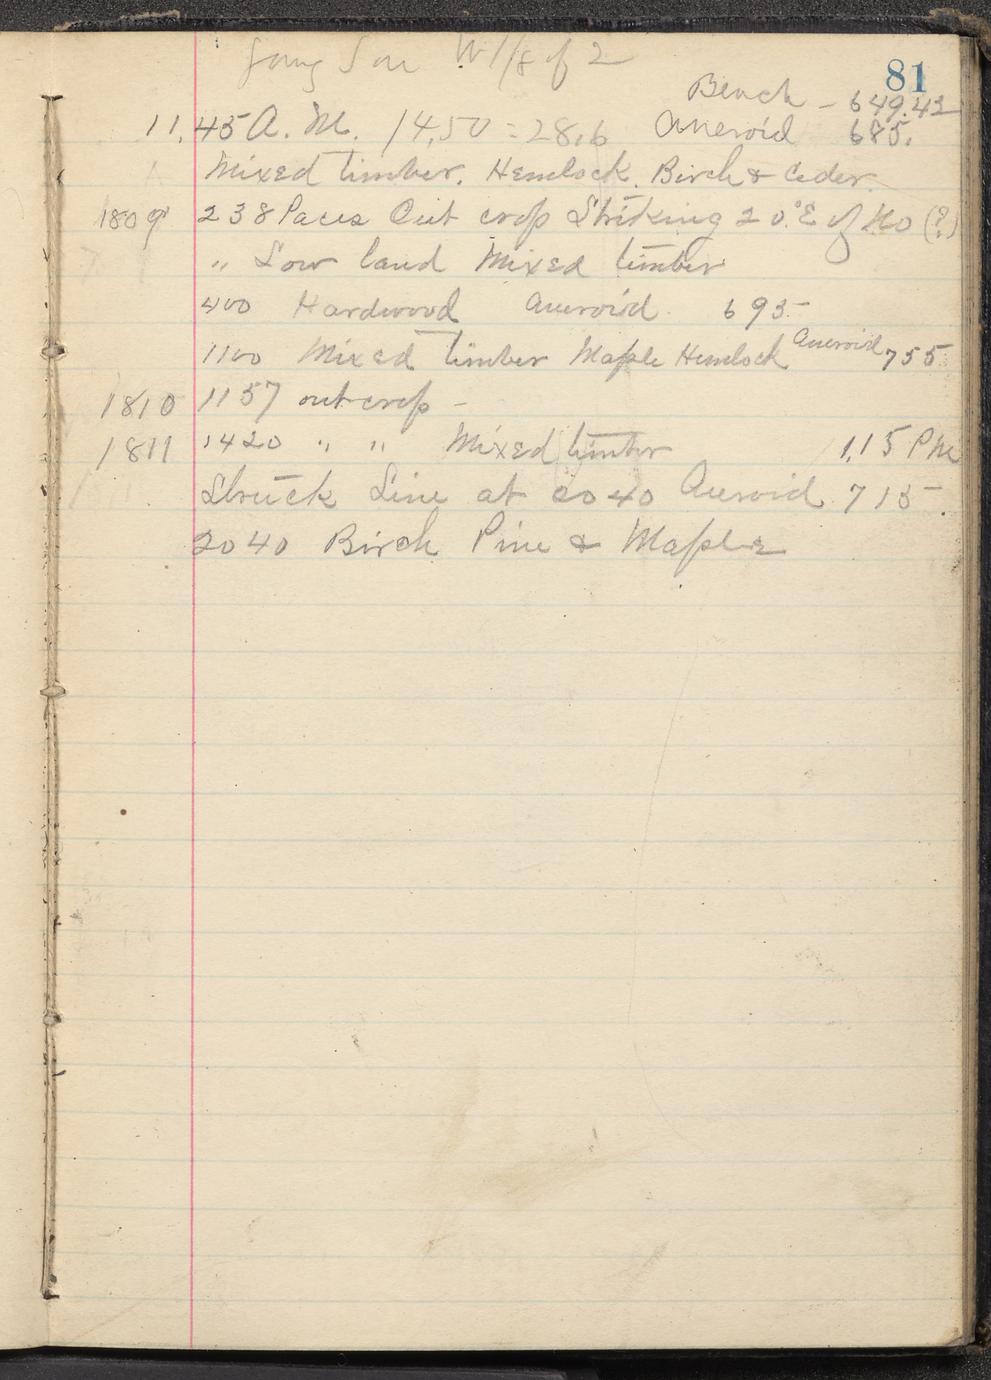 Going S on W 1/8 of 2
81
Bench - 649.42
11.45 A.M. 14.50 = 28.6 Aneroid 685.
Mixed timber. Hemlock. Birch & Ceder.
1809 238 Paces Out crop Striking 20°E of No (?)
" Low land Mixed timber
400 Hardwood Aneroid 695-
1100 Mixed timber Maple Hemlock Aneroid 755
1810 1157 outcrop -
1811 1420 " " Mixed timber 1.15 PM
Struck Line at 2040 Aneroid 715-.
2040 Birch Pine & Maple